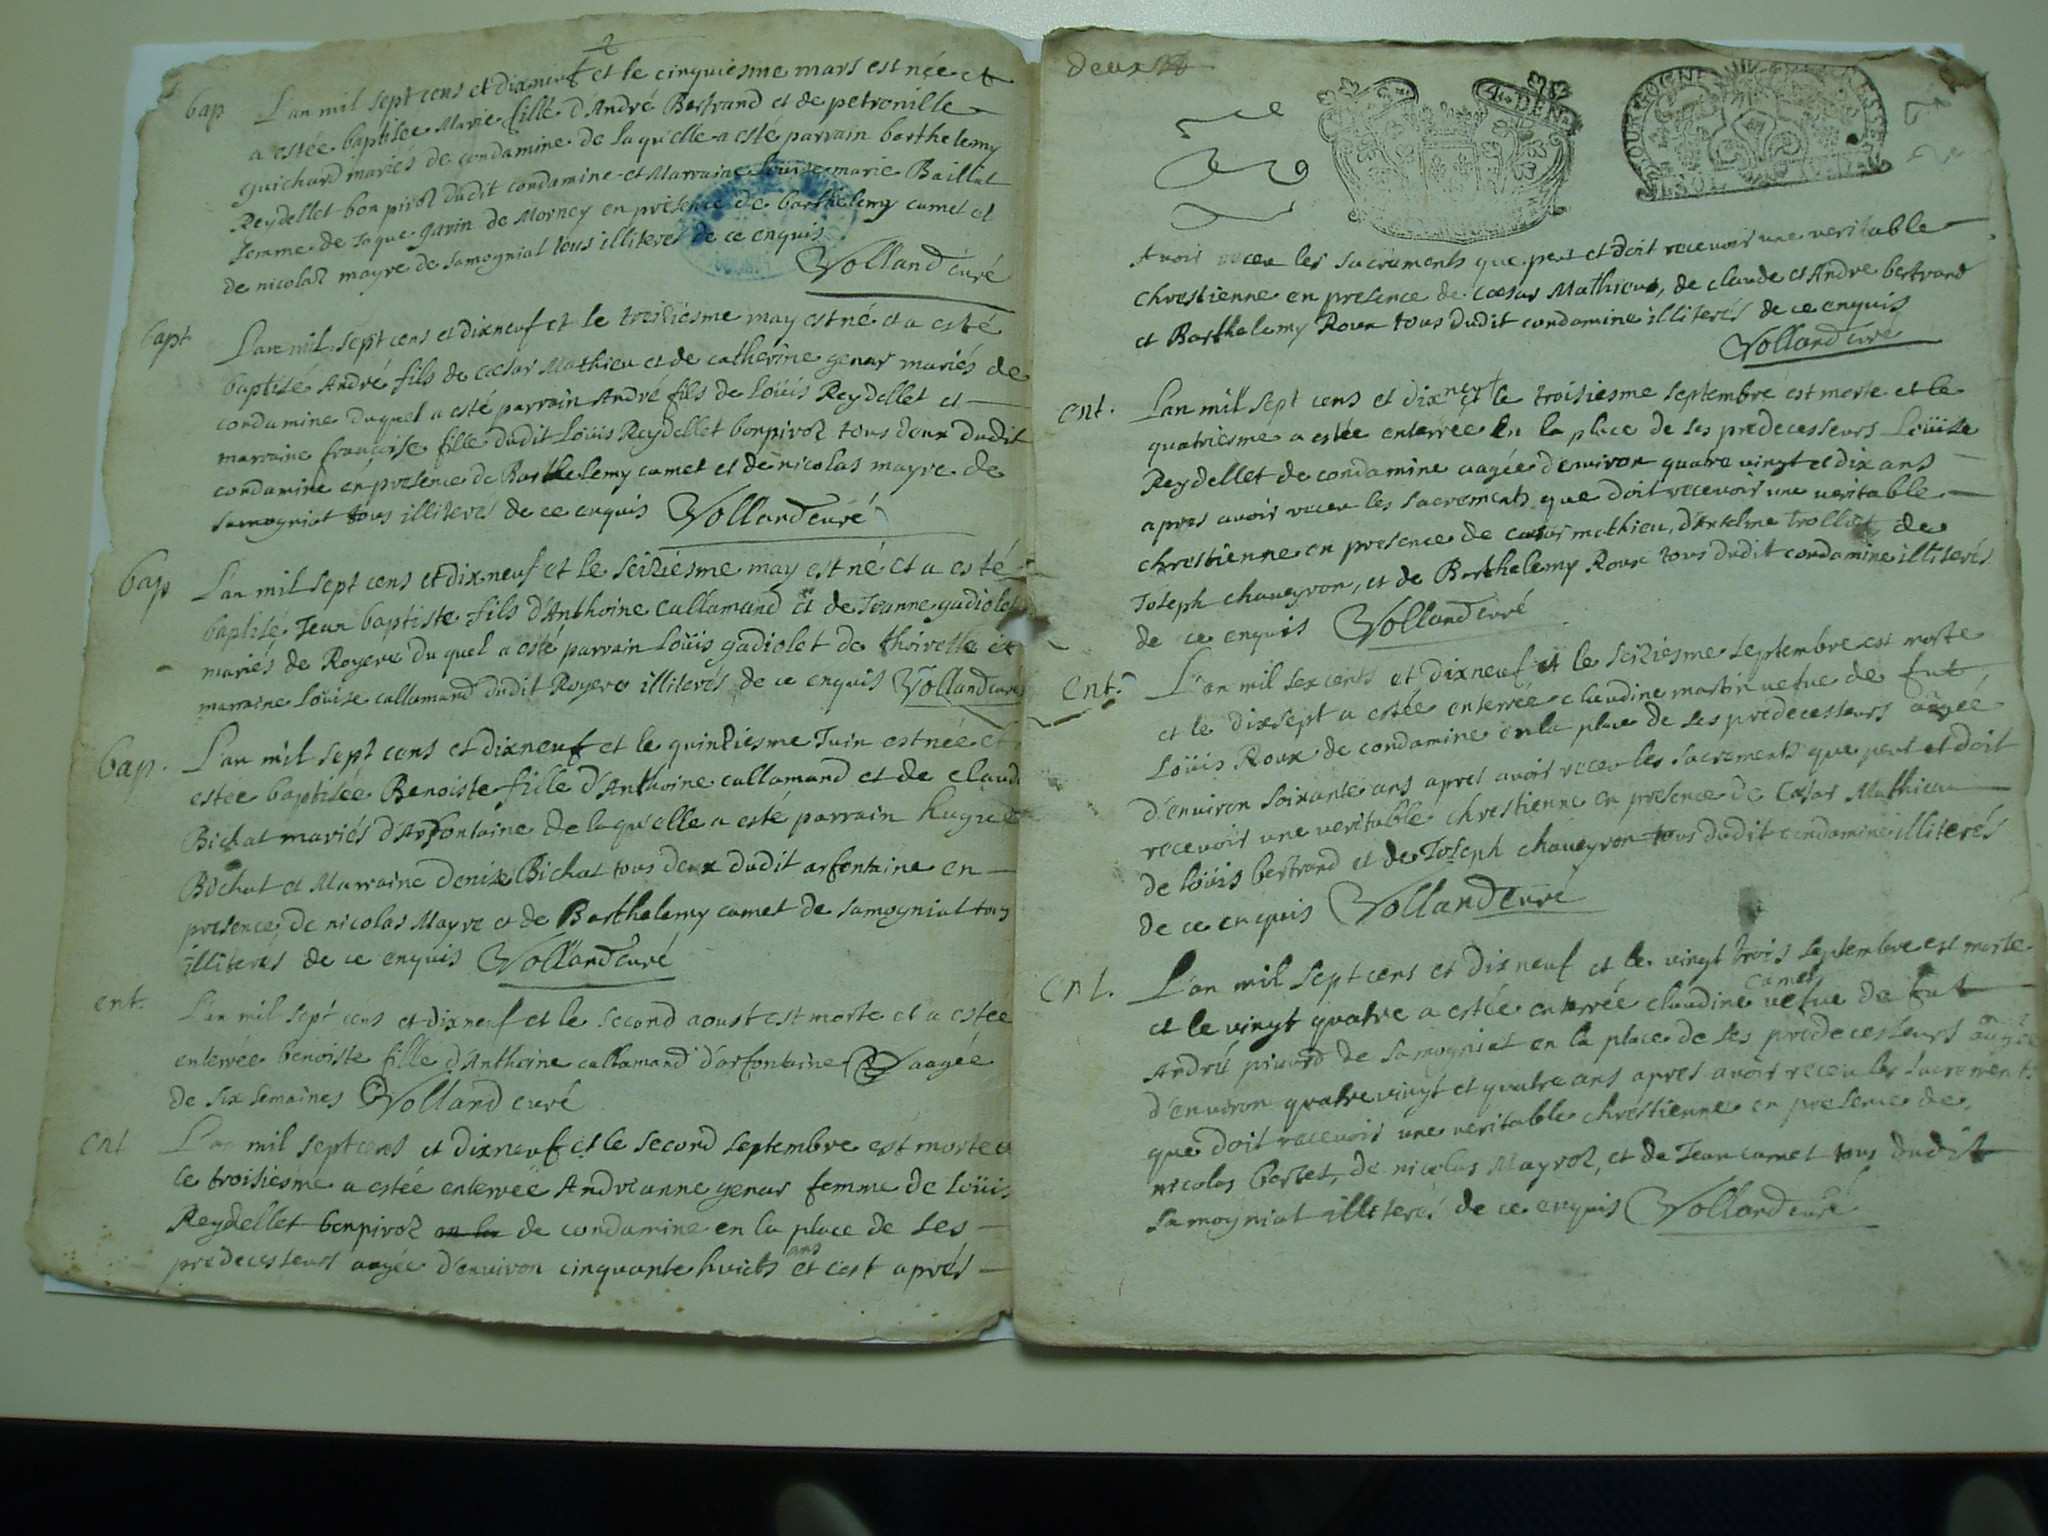 2
bap L'an mil sept cens et dixneuf et le cinquiesme mars est née et
a estée baptisee Marie fille d'André Bertrand et de petronille
guichard mariés de condamine de laquelle a esté parrain barthelemy
Reydellet bon piroz dudit condamine et Marraine Louise marie Baillat
femme de Jaque gavin de Mornay en présence de barthelemy camet et
de nicolas mayre de samogniat tous illiteres de ce enquis
Volland curé
bapt L'an mil sept cens et dixneuf et le treiziesme may est né et a esté
baptisé André fils de cœsar Mathieu et de catherine genar mariés de
condamine duquel a esté parrain André fils de Loüis Reydellet et
marraine françoise fille dudit Loüis Reydellet bonpiroz tous deux dudit
condamine en presence de Barthelemy camet et de nicolas mayre de
samogniat tous illiterés de ce enquis Volland curé
bap L'an mil sept cens et dixneuf et le seiziesme may est né et a esté
baptisé Jean baptiste fils d'Anthoine callamand et de Jeanne gadiolet
mariés de Royere du quel a esté parrain Loüis gadiolet de thoirette et
marraine Loüise callamand dudit Royere illiterés de ce enquis Volland curé
bap. L'an mil sept cens et dixneuf et le quinziesme Juin est née et
estée baptisée Benoiste fille d'Anthoine callamand et de claud
Bichat mariés d'Arfontaine de laquelle a esté parrain hugue
Bichat et Marraine Denise Bichat tous deux dudit arfontaine en
presence de nicolas Mayre et de Barthelemy camet de samogniat tous
illiterés de ce enquis Volland curé
ent. L'an mil sept cens et dixneuf et le second aoust est morte et a estée
enterrée benoiste fille d'Anthoine callamand d'arfontaine aagée
de six semaines Volland curé
ent L'an mil sept cens et dixneuf et le second septembre est morte et
le troisiesme a estée enterrée Andréanne genar femme de Loüis
Reydellet bonpiroz en la de condamine en la place de ses
predecesseurs aagée d'environ cinquante huicts ans et cest aprés
deux
4 DEN.
BOURGOGNE
avoir receu les sacraments que peut et doit recevoir une veritable
chrestienne en presence de cœsar Mathieu, de claude et Andre bertrand
et Barthelemy Roux tous dudit condamine illiterés de ce enquis
Volland curé
ent. L'an mil sept cens et dixneuf et le troisiesme septembre est morte et le
quatriesme a estée enterrée en la place de ses predecesseurs Loüise
Reydellet de condamine aagée d'environ quatre vingt et dix ans
apres avoir receu les sacrements que doit recevoir une veritable
chrestienne en presence de cœsar mathieu, d'Anselme trolliet, de
Joseph chaueyron, et de Barthelemy Roux tous dudit condamine illiterés
de ce enquis Volland curé
ent. L'an mil sex cents et dixneuf et le seiziesme septembre est morte
et le dixsept a estée enterrée claudine martin vefue de fut
Loüis Roux de condamine en la place de ses predecesseurs aagée
d'environ soixante ans apres avoir receu les sacrements que peut et doit
recevoir une veritable chrestienne en presence de Cœsar Mathieu
de loüis bertrand et de Joseph chaueyron tous dudit condamine illiterés
de ce enquis Volland curé
ent. L'an mil sept cens et dixneuf et le vingt trois septembre est morte
et le vingt quatre a estée enterrée claudine camet vefue de fut
André picard de samogniat en la place de ses predecesseurs aagée
d'environ quatre vingt et quatre ans apres avoir receu les sacrements
que doit recevoir une veritable chrestienne en presence de
nicolas bertet, de nicolas Mayroz, et de Jean camet tous dudit
samogniat illiterés de ce enquis Volland curé